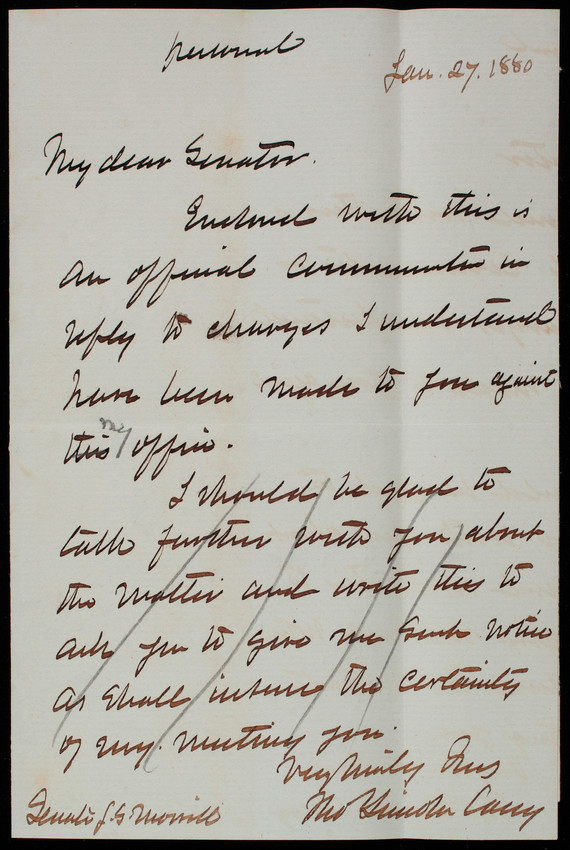 personal
Jan. 27. 1880
My dear Senator.
Enclosed with this is
an official communication in
reply to charges I understand
have been made to you against
my
this office.
I should be glad to
talk further with you about
the matter and write this to
ask you to give me such notice
as shall insure the certainty
of my meeting you.
Very truly Yrs
Thos Lincoln Casey
Senator J. S. Morrill